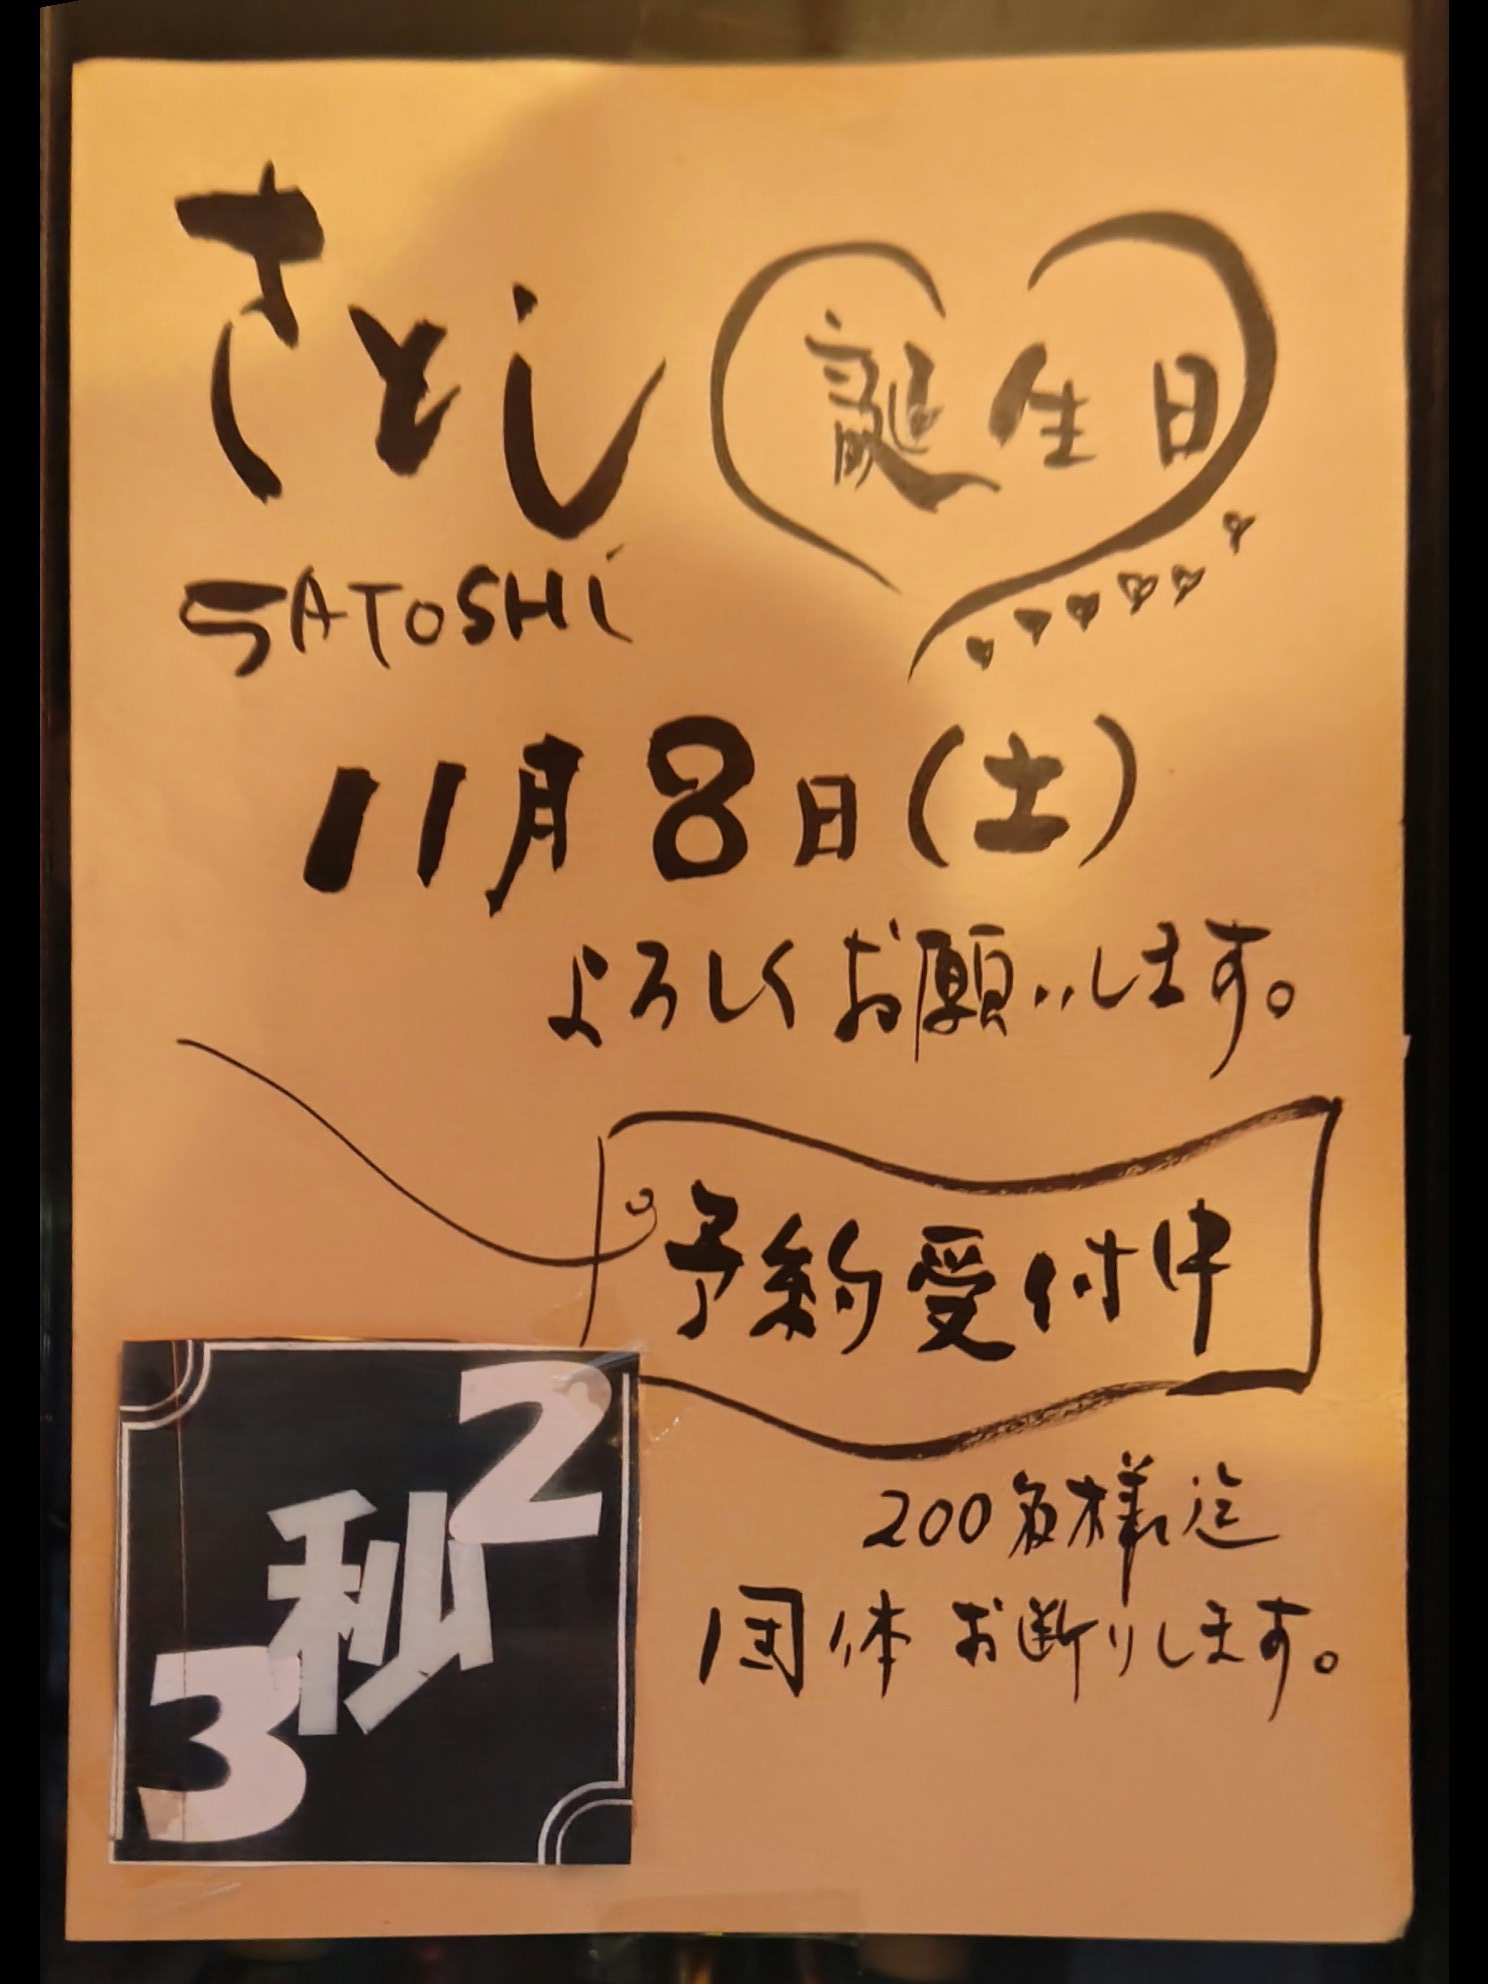 さとし
誕生日
SATOSHi
11月8日(土)
よろしくお願いします。
予約受付中
200名様迄
団体お断りします。
2
秒
3